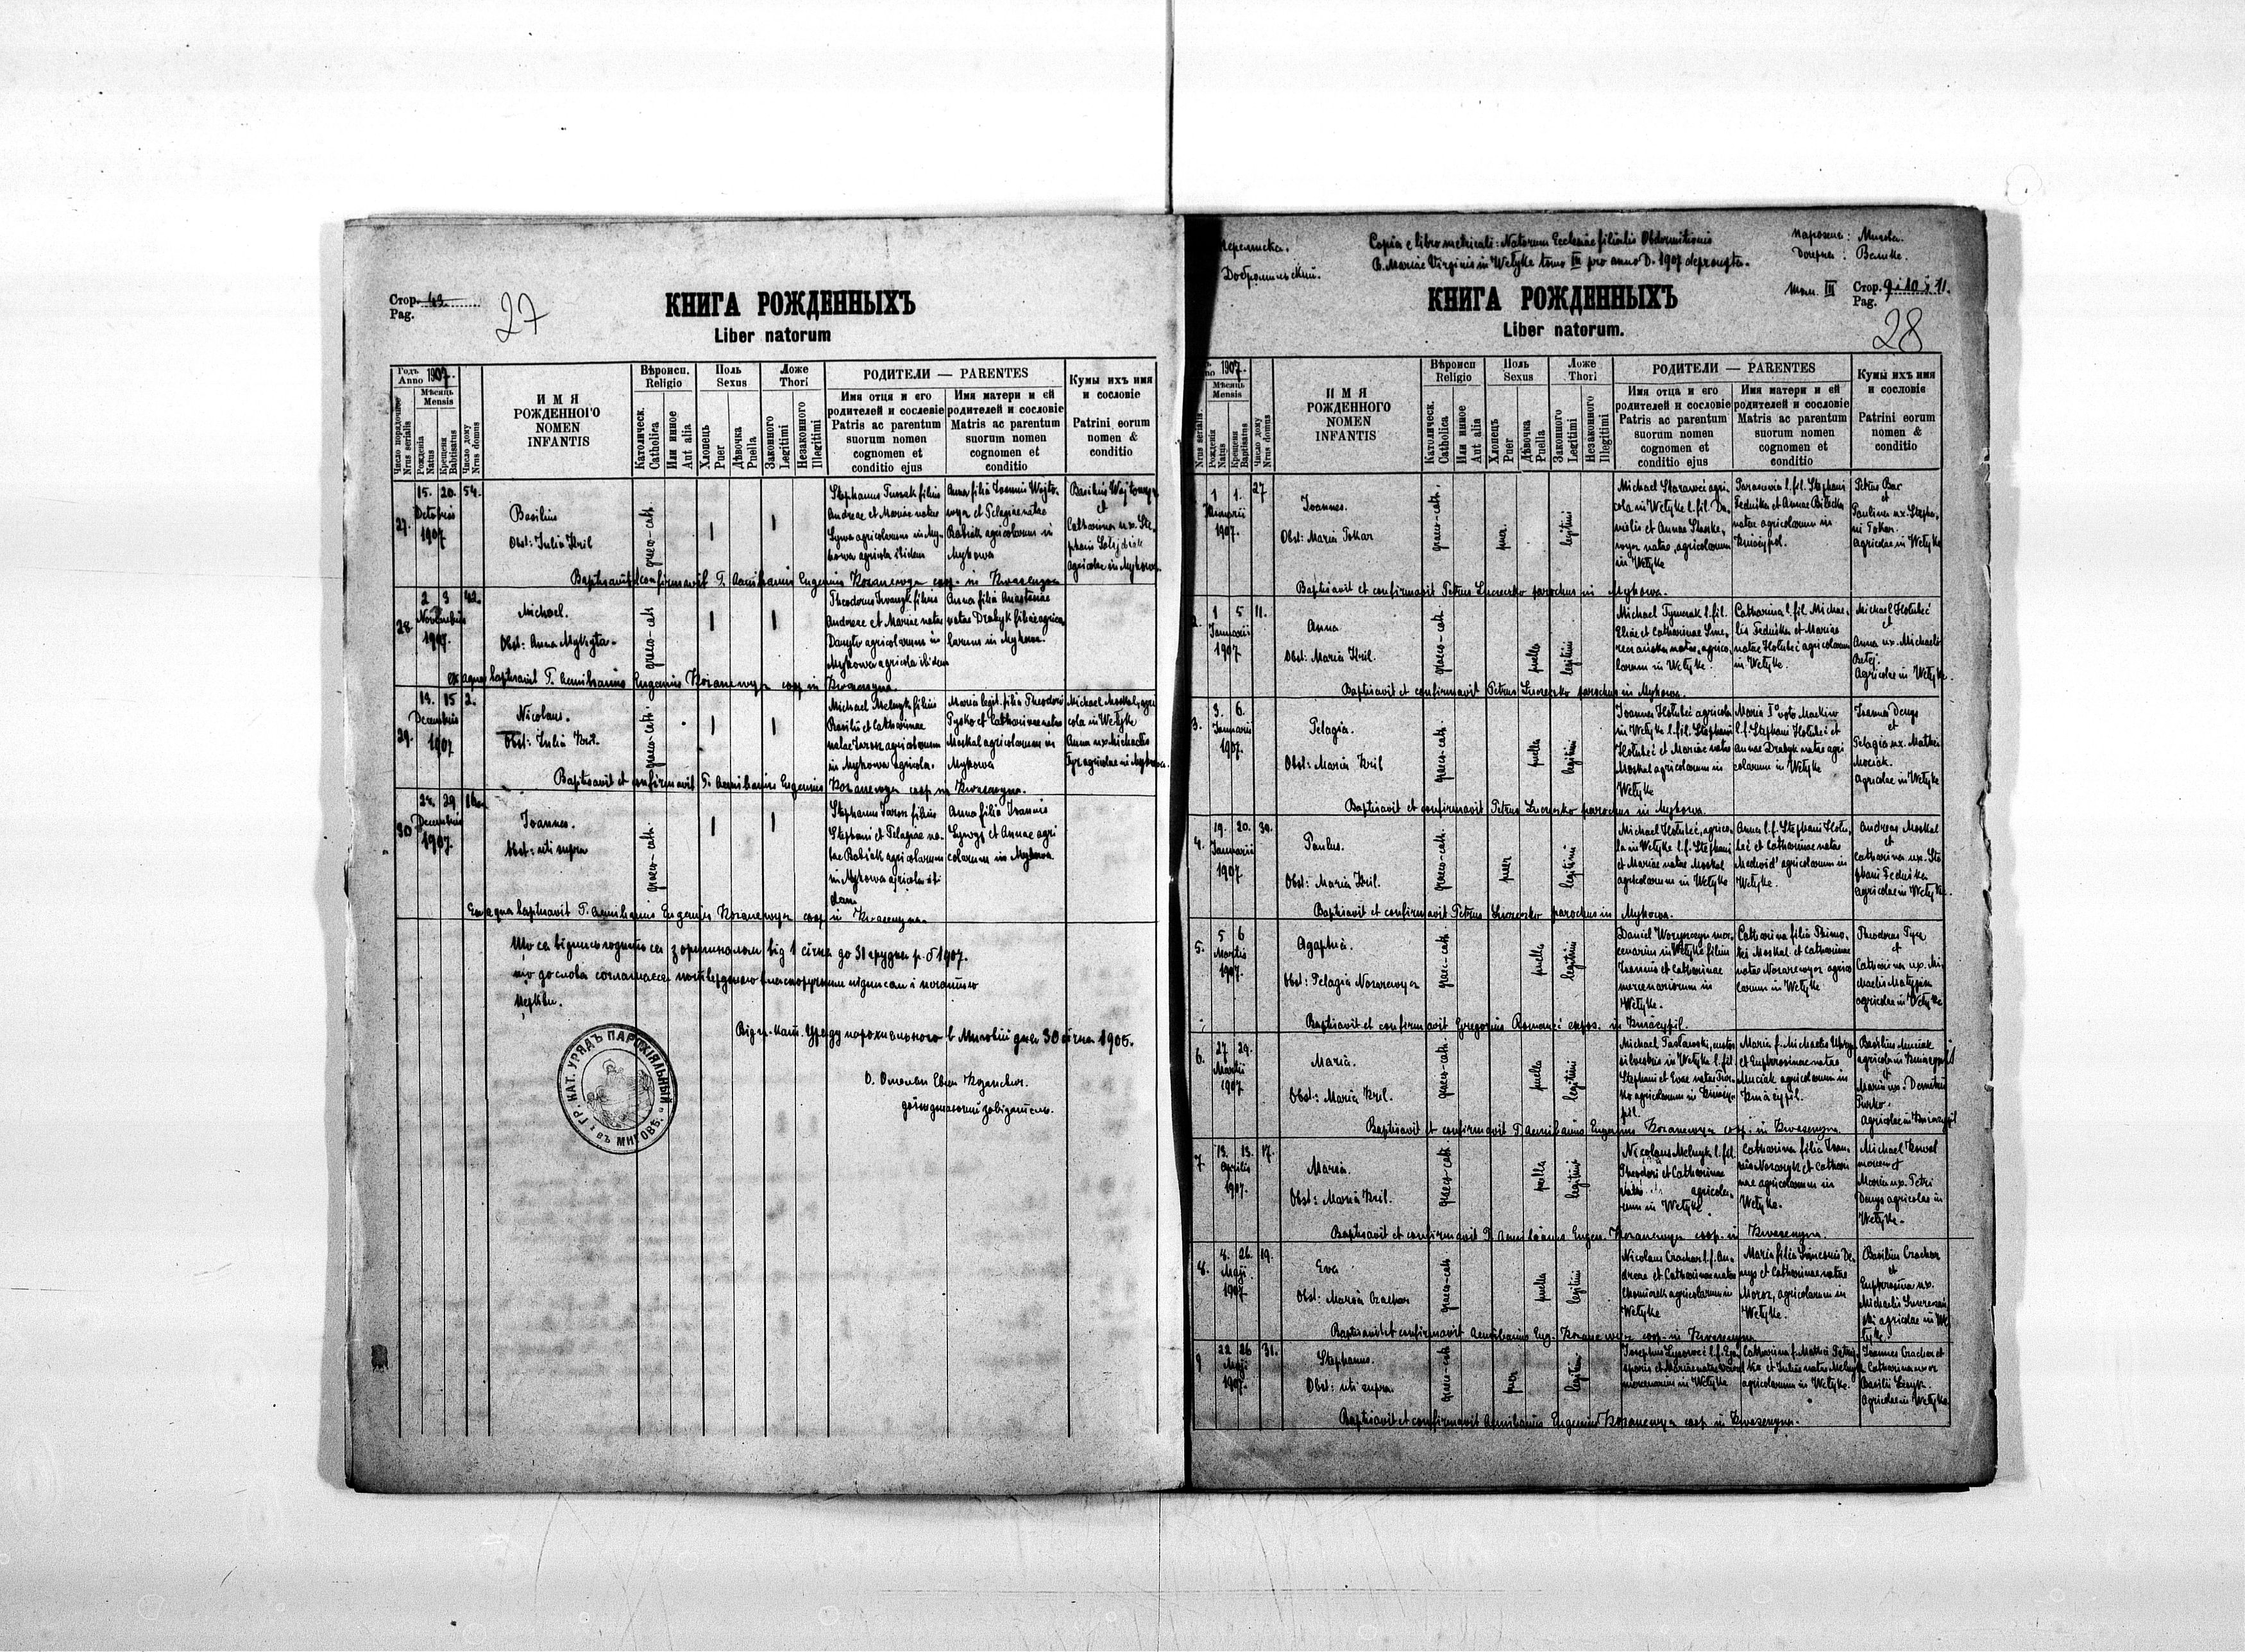 Стор. 43
Pag.
27
КНИГА РОЖДЕННЫХЪ
Liber natorum
Годъ 1907.
Anno
Мѣсяць
Mensis
Число порядочное
Nrus serialis
Рожденія
Natus
Крещенія
Babtisatus
Число дому
Nrus domus
И М Я
РОЖДЕННОГО
NOMEN
INFANTIS
Вѣроисп.
Religio
Католическ.
Catholica
Или инное
Aut alia
Поль
Sexus
Хлопець
Puer
Дѣвочка
Puella
Ложе
Thori
Законного
Legitimi
Незаконного
Illegitimi
РОДИТЕЛИ — PARENTES
Имя отца и его
родителей и сословіе
Patris ac parentum
suorum nomen
cognomen et
conditio ejus
Имя матери и ей
родителей и сословіе
Matris ac parentum
suorum nomen
cognomen et
conditio
Кумы ихъ имя
и сословіе
Patrini eorum
nomen &
conditio
27. 15. 20. 54.
Octobris
1907
Basilius
Obst: Julia Kril
graeco-cath.
Stephanus Tussak filius
Andreae et Mariae natae
agricolarum in My-
kowa agricola ibidem
Anna filia Joannis Wojto-
wycz et Pelagiae natae
Babiak agricolarum in
Mykowa
Basilius Wojtowycz
et
Catharina ux. Ste-
phani
agricolae in Mykowa
Baptisavit et confirmavit T. Aemilianus Eugenius Kozanewycz coop. in Kwasenyna
28. 2 3 42.
Novembris
1907.
Michael.
Obst: Anna Mykyta
graeco-cath
Theodorus filius
Andreae et Mariae natae
Danylo agricolarum in
Mykowa agricola ibidem
Anna filia Anastasiae
natae Drabyk filiae agrico
larum in Mykowa.
ex aqua baptisavit T. Aemilianus Eugenius Kozanewycz coop in Kwasenyna.
29. 14. 15 2.
Decembris
1907
Nicolaus.
Obst: Julia Kril.
graeco-cath.
Michael Melnyk filius
Basilii et Catharinae
natae Jarosz agricolarum
in Mykowa agricola.
Maria legit. filia Theodori
Tysko et Catharinae natae
Moskal agricolarum in
Mykowa
Michael Moskal, agri
cola in Wełyke
Anna ux. Michaelis
Tyz agricolae in Mykowa.
Baptisavit et confirmavit T. Aemilianus Eugenius Kozanewycz coop in Kwasenyna.
30 24. 29.
Decembris
1907.
Joannes.
Obst: uti supra
graeco-cath.
Stephanus Jarosz filius
Stephani et Pelagiae na-
tae Babiak agricolarum
in Mykowa agricola ibi
dem
Anna filia Joannis
et Annae agri
colarum in Mykowa
Ex aqua baptisavit T. Aemilianus Eugenius Kozanewycz coop in Kwasenyna.
Що ся відпись годить ся з оригіналом від 1 січня до 31 грудня р. 1907.
що до слова потверджаю власноручним підписом і печатию
церкви.
Від гр.-кат. Уряду парохіяльного в Мигові дня 30 січня 1908.
О. Омелян Евген Козаневич.
завідатель.
ГР. КАТ. УРЯДЪ ПАРОХІЯЛЬНЫЙ въ МИГОВѢ
Добромильский.
Copia e libro metricali: Natorum Ecclesiae filialis Obdormitionis
B. Mariae Virginis in Wełyke tomo III pro anno D. 1907 deprompta.
парохія: Мигова.
дочерна: Велике.
том. III Стор. 9 i 10 i 11.
Pag.
28
КНИГА РОЖДЕННЫХЪ
Liber natorum.
1907.
Мѣсяць
Mensis
Nrus serialis
Рожденія
Natus
Крещенія
Baptisatus
Число дому
Nrus domus
И М Я
РОЖДЕННОГО
NOMEN
INFANTIS
Вѣроисп
Religio
Католическ.
Catholica
Или инное
Aut alia
Поль
Sexus
Хлопець
Puer
Дѣвочка
Puella
Ложе
Thori
Законного
Legitimi
Незаконного
Illegitimi
РОДИТЕЛИ — PARENTES
Имя отца и его
родителей и сословіе
Patris ac parentum
suorum nomen
cognomen et
conditio ejus
Имя матери и ей
родителей и сословіе
Matris ac parentum
suorum nomen
cognomen et
conditio
Кумы ихъ имя
и сословіе
Patrini eorum
nomen &
conditio
1 1. 27
Januarii
1907.
Joannes.
Obst: Maria Tokar
graeco-cath.
puer.
legitimi
Michael agri-
cola in Wełyke l. fil. Da-
nielis et Annae
natae, agricolarum
in Wełyke
Parascevia l. fil. Stephani
Fedniska et Annae
natae agricolarum in
Kniażpol.
Petrus Bac
et
Paulina ux. Stepha-
ni Tokar.
agricolae in Wełyke
Baptisavit et confirmavit Petrus parochus in Mykowa.
2. 1 5 11.
Januarii
1907
Anna
Obst: Maria Kril.
graeco-cath.
puella
legitimi
Michael Tymczak l. fil.
Eliae et Catharinae
natae, agrico-
larum in Wełyke.
Catharina l. fil. Michae-
lis Fedniska et Mariae
natae Hołubeć agricolarum
in Wełyke.
Michael Hołubeć
et
Anna ux. Michaelis
agricolae in Wełyke.
Baptisavit et confirmavit Petrus parochus in Mykowa.
3. 3. 6.
Januarii
1907.
Pelagia.
Obst: Maria Kril
graeco-cath.
puella
legitimi
Joannes Hołubeć agricola
in Wełyke l. fil. Stephani
Hołubeć et Mariae natae
Moskal agricolarum in
Wełyke
Maria Iº voto Mackiw
l. f. Stephani Hołubeć et
Annae Drabyk natae agri
colarum in Wełyke
Joannes Denys
et
Pelagia ux. Mathei
Mociak.
agricolae in Wełyke
Baptisavit et confirmavit Petrus parochus in Mykowa.
4. 19. 20. 39.
Januarii
1907.
Paulus.
Obst: Maria Kril.
graeco-cath.
puer
legitimi
Michael Hołubeć, agrico-
la in Wełyke l. f. Stephani
et Mariae natae Moskal
agricolarum in Wełyke
Anna l. f. Stephani Hołu-
beć et Catharinae natae
Medwid' agricolarum in
Wełyke.
Andreas Moskal
et
Catharina ux. Ste
phani Fedniska
agricolae in Wełyke.
Baptisavit et confirmavit Petrus parochus in Mykowa.
5. 5 6
Martii
1907.
Agaphia.
Obst: Pelagia Nazarewycz
graec-cath.
puella
legitimi
Daniel mer-
cenarius in Wełyke filius
Joannis et Catharinae
mercenariorum in
Wełyke.
Catharina filia Thimo-
thei Moskal et Catharinae
natae Nazarewycz agrico
larum in Wełyke
Theodorus Tycz
et
Catharina ux. Mi-
chaelis
agricolae in Wełyke
Baptisavit et confirmavit Gregorius Romanec expos. in Kniażypil.
6. 27 29.
Martii
1907
Maria.
Obst: Maria Kril.
graeco-cath.
puella
legitimi
Michael Pasławski, custos
silvestris in Wełyke l. fil
Stephani et Evae natae
agricolarum in Kniaży-
pil.
Maria f. Michaelis
et Euphrosinae natae
Muciak agricolarum in
Kniażypil.
Basilius Muciak
agricola in Kniażypil
et
Maria ux. Demitrii
agricolae in Kniażypil
Baptisavit et confirmavit T. Aemilianus Eugenius Kozanewycz coop. in Kwasenyna
7 13. 13. 17.
Aprilis
1907.
Maria.
Obst: Maria Kril.
graeco-cath.
puella
legitimi
Nicolaus Melnyk l. fil
Theodori et Catharinae
natae agricola-
rum in Wełyke.
Catharina filia Joan-
nis Nazaryk et Cathari
nae agricolarum in
Wełyke.
Michael Kowal
et
Maria ux. Petri
Denys agricolae in
Wełyke.
Baptisavit et confirmavit T. Aemilianus Eugen. Kozanewycz coop. in Kwasenyna.
8. 4. 26. 19.
Maji
1907
Eva
Obst: Maria Crachor
graeco-cath
puella
legitimi
Nicolaus Crachor l. f. An-
dreae et Catharinae natae
agricolarum in
Wełyke
Maria filia Simeonis De-
nys et Catharinae natae
Moroz, agricolarum in
Wełyke.
Basilius Crachor
et
Euphrosina ux.
Michaelis
agricolae in We
łyke.
Baptisavit et confirmavit Aemilianus Eug. Kozanewycz coop. in Kwasenyna
9 22 26 31.
Maji
1907.
Stephanus.
Obst: uti supra.
graeco-cath
puer
legitimi
Josephus l. f.
et Mariae natae
mercenarius in Wełyke
Catharina f. Mathei
et Juliae natae Melnyk
agricolarum in Wełyke.
Joannes Crachor et
Catharina uxor
Basilii
agricolae in Wełyke
Baptisavit et confirmavit Aemilianus Eugenius Kozanewycz coop in Kwasenyna.